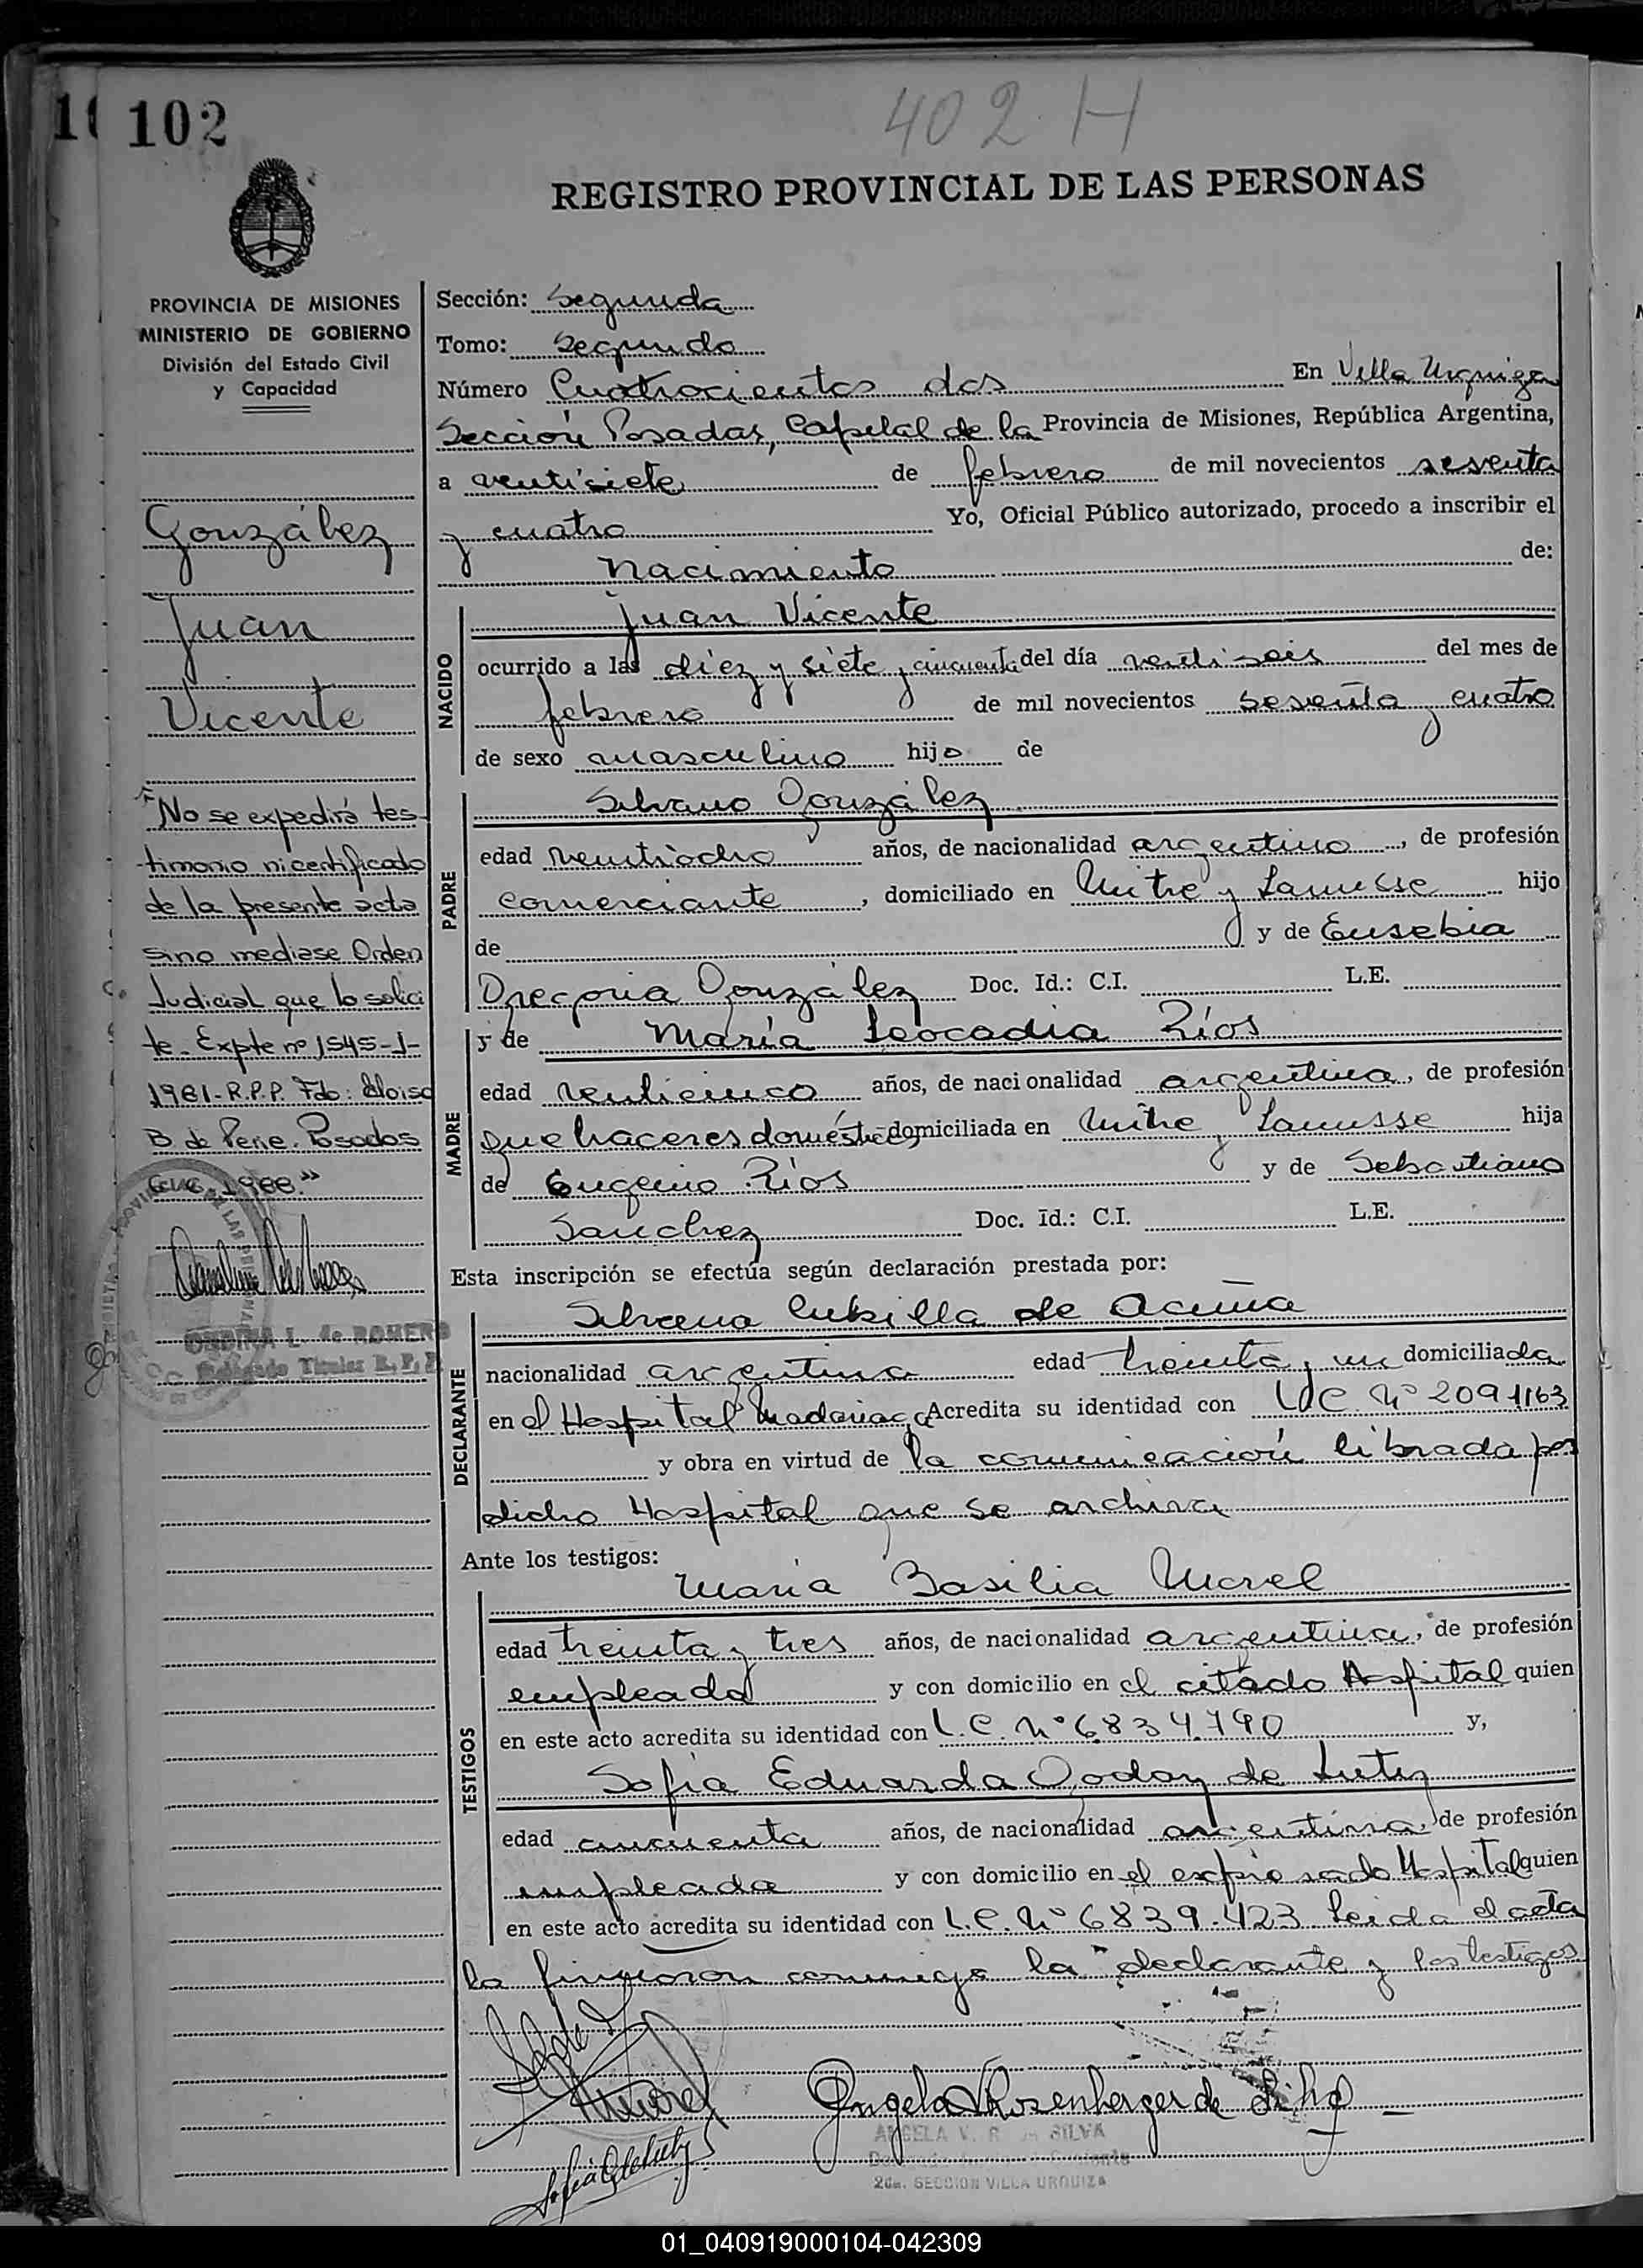 102
402 H
REGISTRO PROVINCIAL DE LAS PERSONAS
PROVINCIA DE MISIONES
MINISTERIO DE GOBIERNO
División del Estado Civil
y Capacidad
González
Juan
Vicente
"No se expedirá tes-
timonio ni certificado
de la presente acta
sino mediase Orden
Judicial que lo solici
te. Expte nº 1545-J-
1981-R.P.P. Fdo: Eloisa
B. de Posadas
1988."
ONDINA L. de ROMERO
Delegado Titular R.P.P.
Sección: Segunda
Tomo: Segundo
Número Cuatrocientos dos En Villa Urquiza
Sección Posadas, Capital de la Provincia de Misiones, República Argentina,
a veintisiete de febrero de mil novecientos sesenta
y cuatro Yo, Oficial Público autorizado, procedo a inscribir el
nacimiento de:
NACIDO
Juan Vicente
ocurrido a las diez y siete y cincuenta del día veintiseis del mes de
febrero de mil novecientos sesenta y cuatro
de sexo masculino hijo de
PADRE
Silvano González
edad veintiocho años, de nacionalidad argentino, de profesión
comerciante, domiciliado en Mitre y Lanusse hijo
de y de Eusebia
Gregoria González Doc. Id.: C.I. L.E.
MADRE
y de María Leocadia Ríos
edad veinticinco años, de nacionalidad argentina, de profesión
quehaceres domésticos domiciliada en Mitre y Lanusse hija
de Eugenio Ríos y de Sebastiana
Sanchez Doc. Id.: C.I. L.E.
Esta inscripción se efectúa según declaración prestada por:
DECLARANTE
Silvana Cubilla de Acuña
nacionalidad argentina edad treinta y un domiciliada
en el Hospital Madariaga Acredita su identidad con L.C. Nº 2091163
y obra en virtud de la comunicación librada por
dicho Hospital que se archiva
Ante los testigos:
TESTIGOS
María Basilia Morel
edad treinta y tres años, de nacionalidad argentina, de profesión
empleada y con domicilio en el citado Hospital quien
en este acto acredita su identidad con L.C. Nº 6.834.790 y,
Sofía Eduarda Godoy de Lutz
edad cincuenta años, de nacionalidad argentina, de profesión
empleada y con domicilio en el expresado Hospital quien
en este acto acredita su identidad con L.C. Nº 6839.423 Leida el acta
la firmaron conmigo la declarante y los testigos
Angela V Rosenberger de Silva
ANGELA V. R. de SILVA
2da. SECCION VILLA URQUIZA
01_040919000104-042309